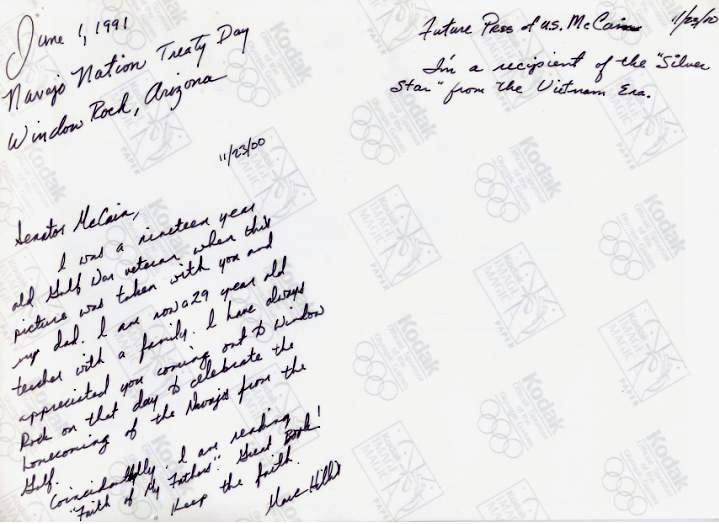 June 1, 1991
Navajo Nation Treaty Day
Window Rock, Arizona
11/23/00
Senator McCain,
I was a nineteen year
old Gulf War veteran when this
picture was taken with you and
my dad. I am now a 29 year old
teacher with a family. I have always
appreciated you coming out to Window
Rock on that day to celebrate the
homecoming of the Navajos from the
Gulf.
Coincidentally, I am reading
"Faith of My Fathers". Great Book!
Keep the faith.
Future Pres of U.S. McCain 11/23/00
I'm a recipient of the "Silver
Star" from the Vietnam Era.
Kodak